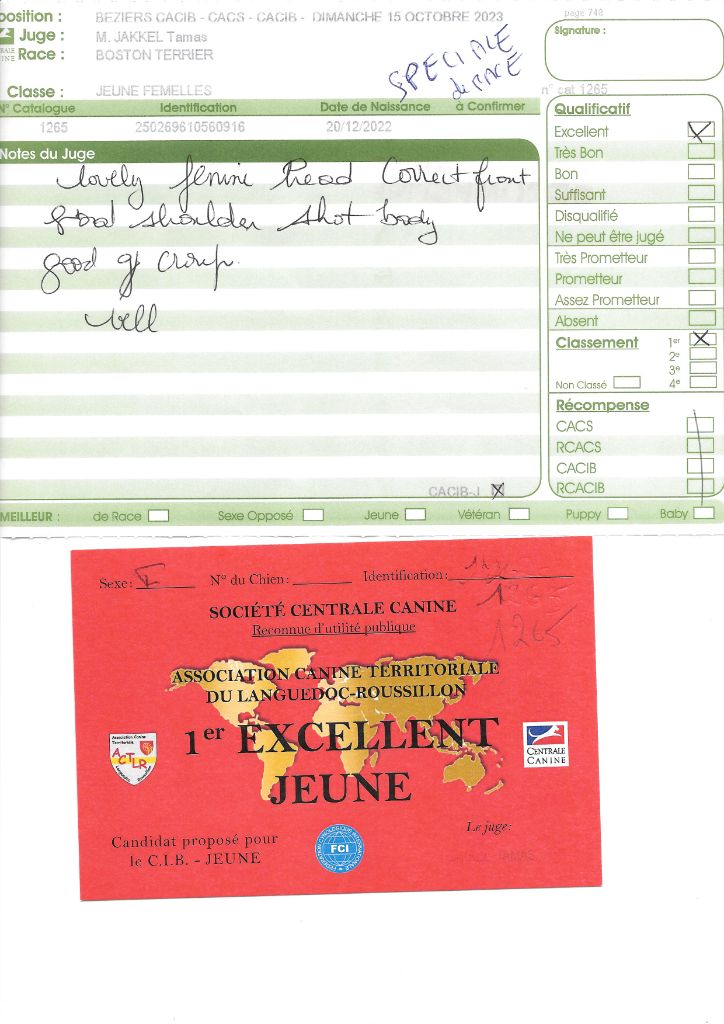 position : BEZIERS CACIB - CACS - CACIB - DIMANCHE 15 OCTOBRE 2023
page 748
Juge : M. JAKKEL Tamas
Signature :
Race : BOSTON TERRIER
SPECIALE
de RACE
Classe : JEUNE FEMELLES
n° cat 1265
N° Catalogue Identification Date de Naissance à Confirmer
1265 250269610560916 20/12/2022
Notes du Juge
lovely femine head Correct front
good shoulder shot body
good of croup.
well
CACIB-J
Qualificatif
Excellent
Très Bon
Bon
Suffisant
Disqualifié
Ne peut être jugé
Très Prometteur
Prometteur
Assez Prometteur
Absent
Classement 1er
2e
3e
Non Classé 4e
Récompense
CACS
RCACS
CACIB
RCACIB
MEILLEUR : de Race Sexe Opposé Jeune Vétéran Puppy Baby
Sexe: F N° du Chien: Identification:
1265
1265
SOCIÉTÉ CENTRALE CANINE
Reconnue d'utilité publique
ASSOCIATION CANINE TERRITORIALE
DU LANGUEDOC-ROUSSILLON
1er EXCELLENT
JEUNE
Association Canine
Territoriale
ACTLR
Languedoc Roussillon
CENTRALE
CANINE
Candidat proposé pour
le C.I.B. - JEUNE
FCI
Le juge:
TAMAS